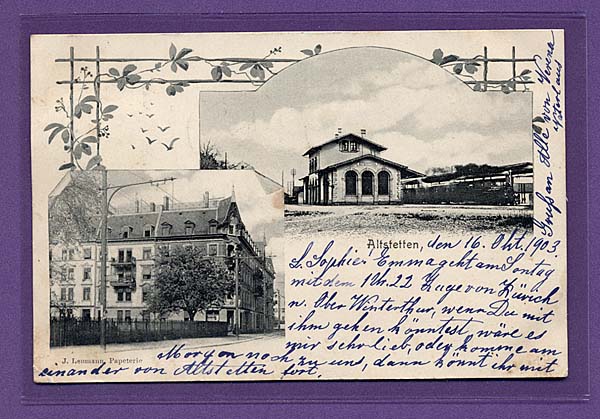 Altstetten, den 16. Okt. 1903.
L. Sophie! Emma geht am Sontag
mit dem 10h.22 Zuge von Zürich
n. Ober Winterthur, wenn Du mit
ihm gehen könntest, wäre es
mir sehr lieb, oder komme am
Morgen noch zu uns, dann könnt ihr mit
einander von Altstetten fort.
Gruß an Alle von Verena
J. Leumann, Papeterie